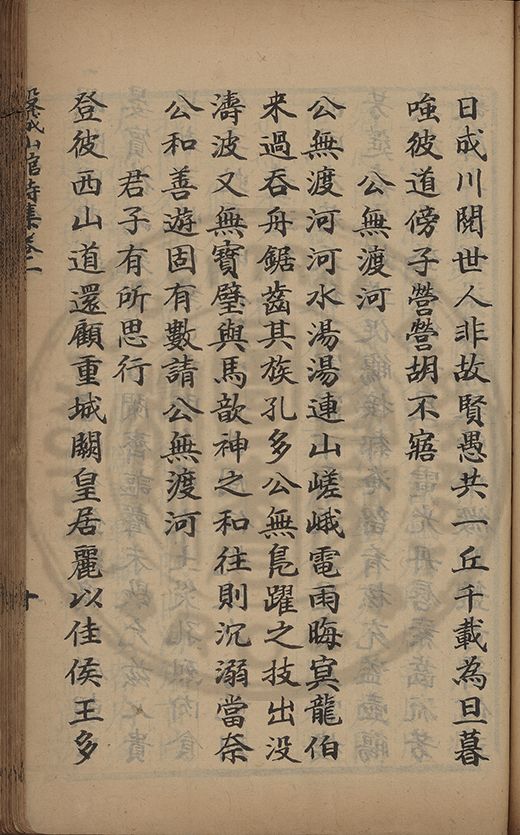 日成川閱世人非故賢愚共一丘千載為旦暮
嗤彼道傍子營營胡不寤
公無渡河
公無渡河河水湯湯連山嵯峨電雨晦冥龍伯
来過吞舟鋸齒其族孔多公無鳧躍之技出没
濤波又無寶璧與馬歆神之和往則沉溺當奈
公和善遊固有數請公無渡河
君子有所思行
登彼西山道還顧重城闕皇居麗以佳侯王多
山館詩集卷一
十